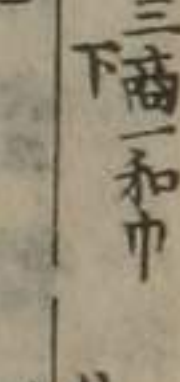 三商一和巾
下